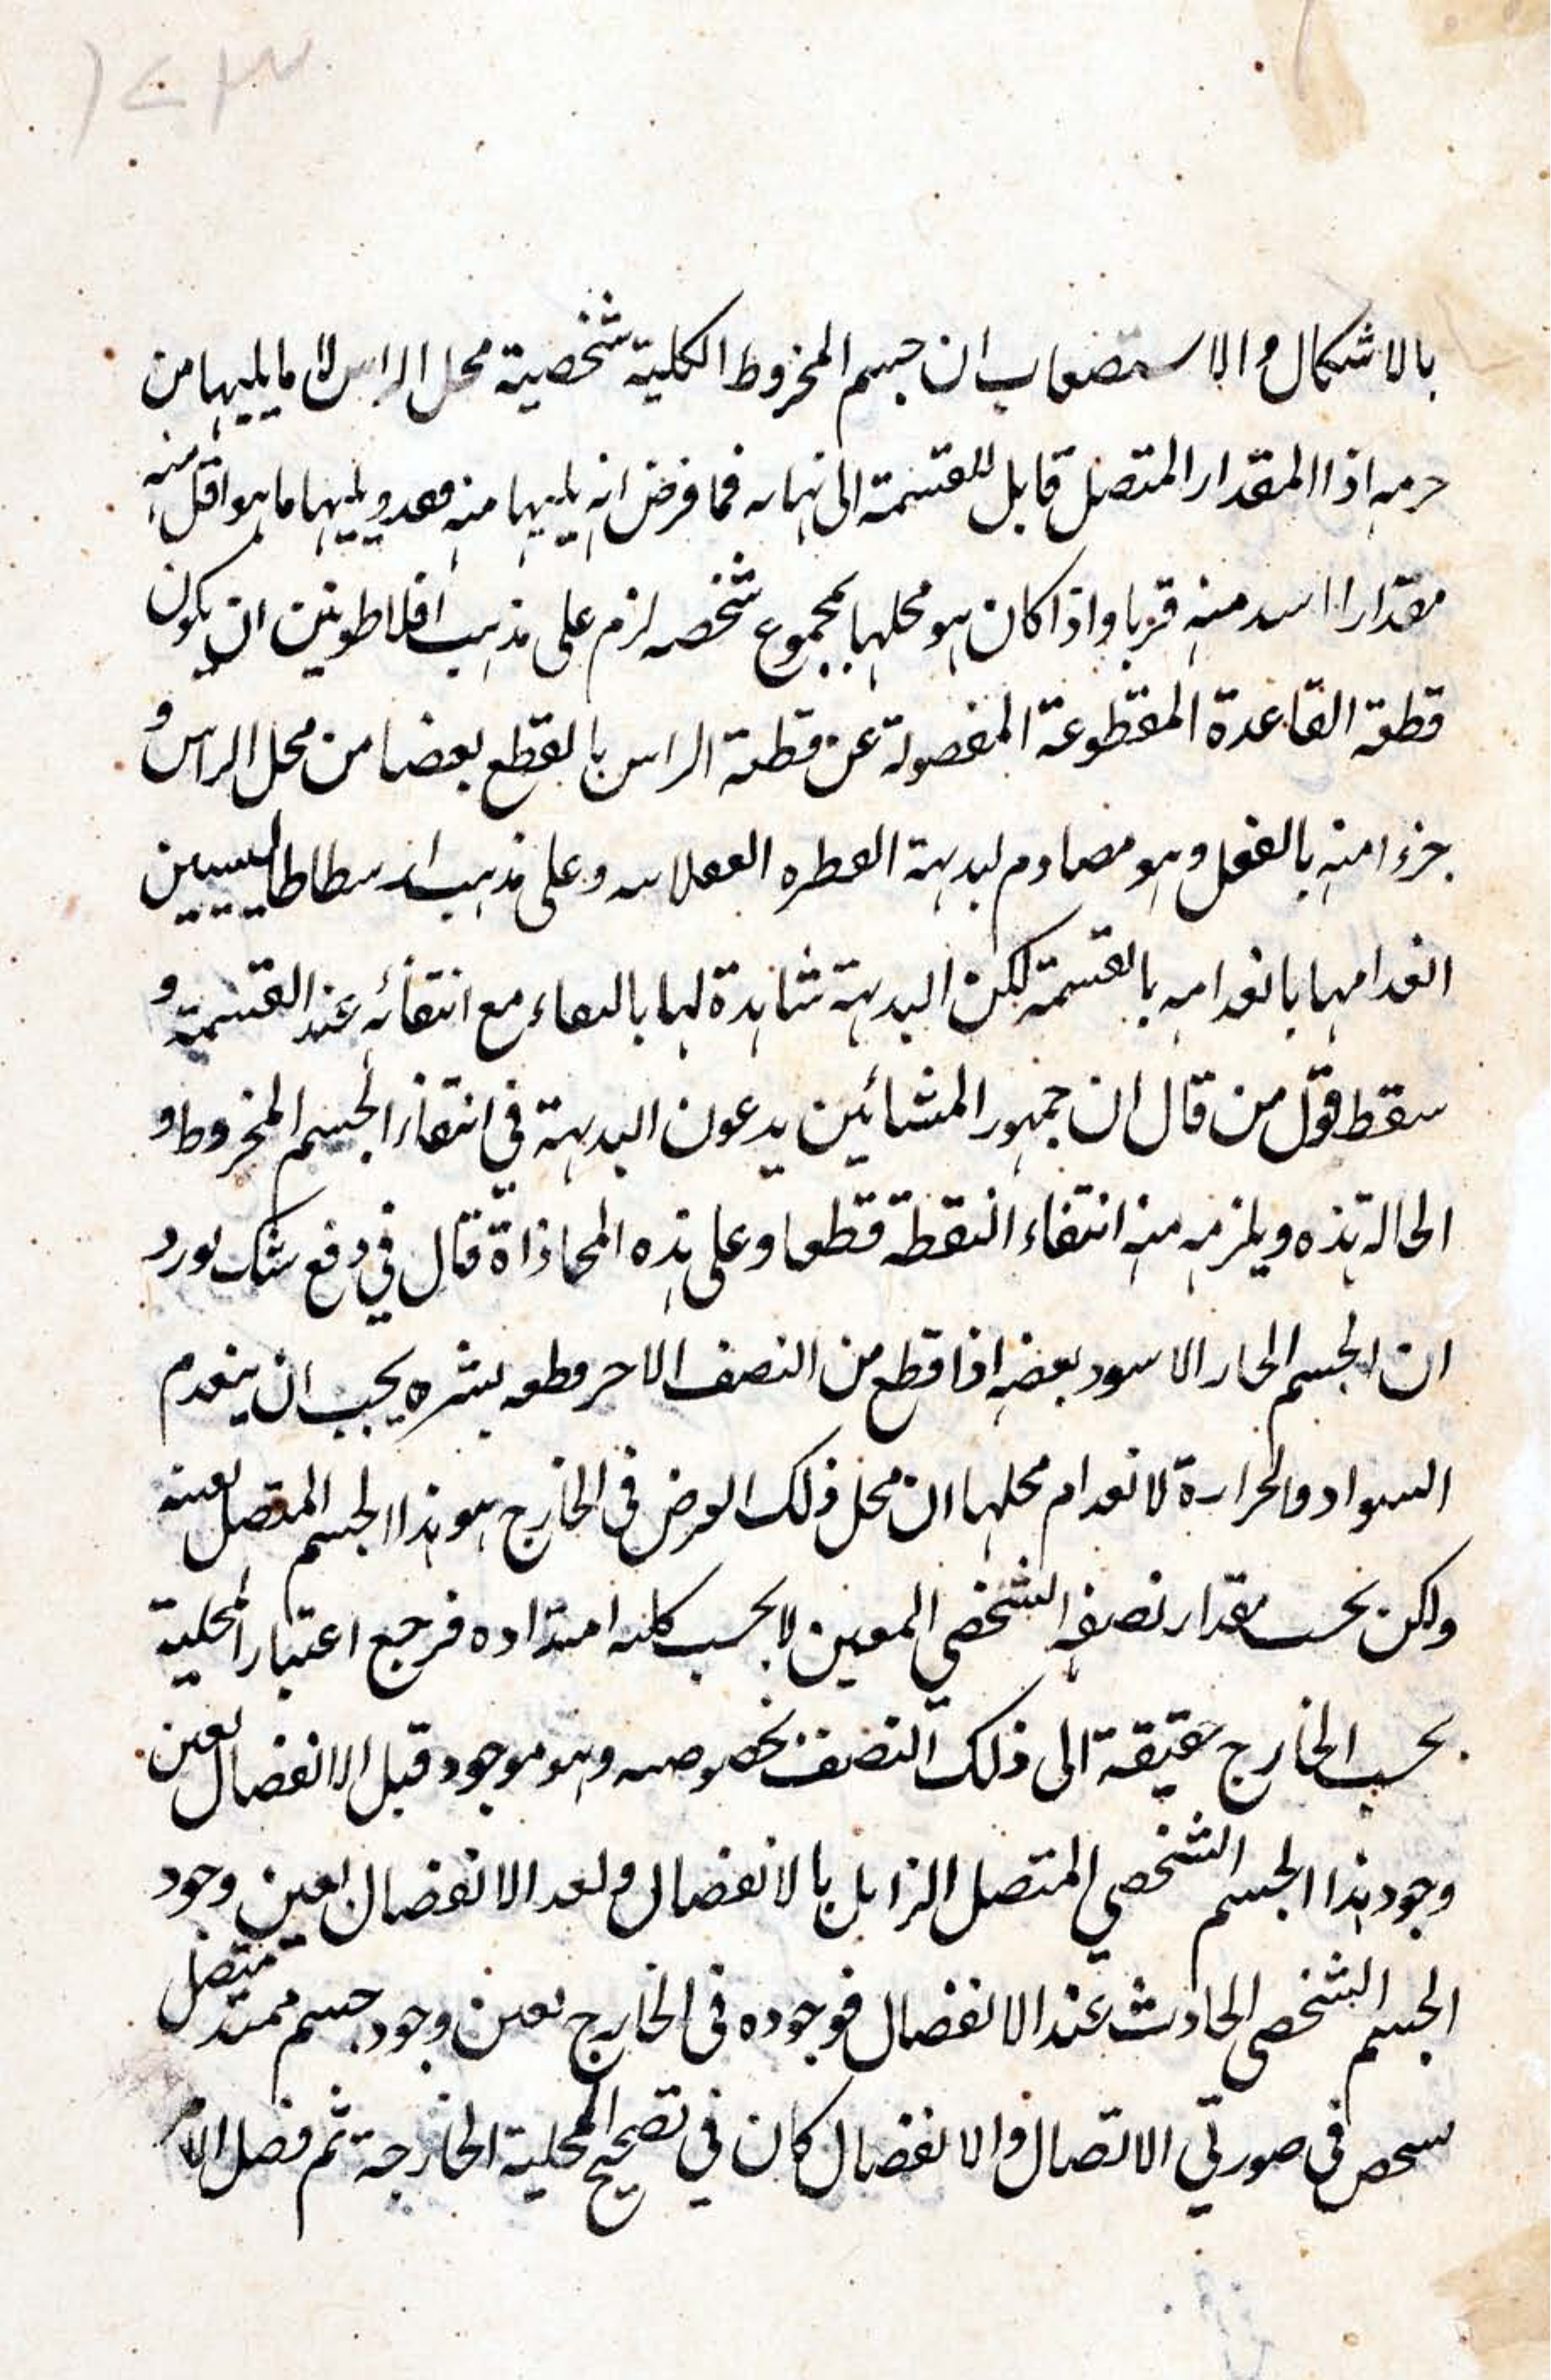 ١٢٣
بالاشكال والاستصعاب ان جسم المخروط الكلية شخصية محل الراس لا ما يليها من
جرمه اذا المقدار المتصل قابل للقسمة الى نهايه فما فرض انه يليها منه فقد ويليها ما هو اقل منه
مقدارا اسد منه قربا واذا كان هو محلها بمجموع شخصه لزم على مذهب افلاطونيين ان يكون
قطعة القاعدة المقطوعة المفصولة عن قطعة الراس بالقطع بعضا من محل الراس و
جزءا منه بالفعل وهو مصادم لبديهة الفطره العقلانيه وعلى مذهب ارسطاطاليسيين
انعدامها بانعدامه بالقسمة لكن البديهة شاهدة لها بالبقاء مع انتفائه عند القسمة و
سقط قول من قال ان جمهور المشائين يدعون البديهة في انتفاء الجسم المخروط و
الحالة هذه ويلزمه منه انتفاء النقطة قطعا وعلى هذه المحاذاة قال في دفع شك يورد
ان الجسم الحار الاسود بعضه اذا قطع من النصف الاخر قطعه بشبره يجب ان ينعدم
السواد والحرارة لانعدام محلها ان محل ذلك العرض في الخارج هو هذا الجسم المتصل بعينه
ولكن بحسب مقدار نصفه الشخصي المعين لا بحسب كليه امتداده فرجع اعتبار المحلية
بحسب الخارج حقيقة الى ذلك النصف بخصوصه وهو موجود قبل الانفصال بعين
وجود هذا الجسم الشخصي المتصل الزايل بالانفصال وبعد الانفصال بعين وجود
الجسم الشخصي الحادث عند الانفصال فوجوده في الخارج بعين وجود جسم ممتد متصل
شخص في صورتي الاتصال والانفصال كان في تصحيح المحلية الخارجة ثم فصل الامر